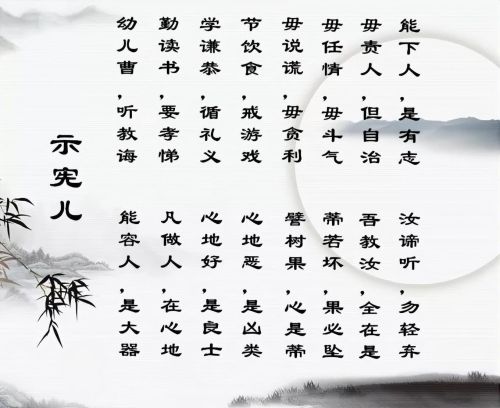 示宪儿
幼儿曹，听教诲
勤读书，要孝悌
学谦恭，循礼义
节饮食，戒游戏
毋说谎，毋贪利
毋任情，毋斗气
毋责人，但自治
能下人，是有志
能容人，是大器
凡做人，在心地
心地好，是良士
心地恶，是凶类
譬树果，心是蒂
蒂若坏，果必坠
吾教汝，全在是
汝谛听，勿轻弃